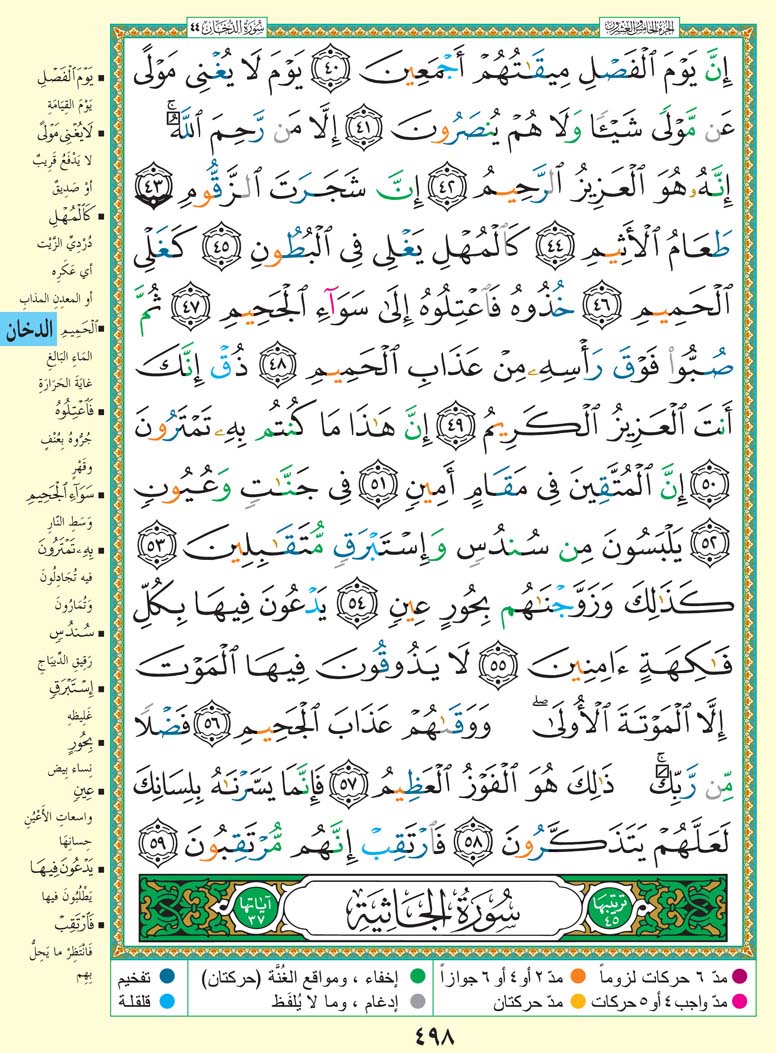 سُورَةُ الدُّخَانِ ٤٤
الجزء الخامس والعشرون
إِنَّ يَوْمَ ٱلْفَصْلِ مِيقَٰتُهُمْ أَجْمَعِينَ ٤٠ يَوْمَ لَا يُغْنِى مَوْلًى
عَن مَّوْلًى شَيْـًٔا وَلَا هُمْ يُنصَرُونَ ٤١ إِلَّا مَن رَّحِمَ ٱللَّهُ ۚ
إِنَّهُۥ هُوَ ٱلْعَزِيزُ ٱلرَّحِيمُ ٤٢ إِنَّ شَجَرَتَ ٱلزَّقُّومِ ٤٣
طَعَامُ ٱلْأَثِيمِ ٤٤ كَٱلْمُهْلِ يَغْلِى فِى ٱلْبُطُونِ ٤٥ كَغَلْىِ
ٱلْحَمِيمِ ٤٦ خُذُوهُ فَٱعْتِلُوهُ إِلَىٰ سَوَآءِ ٱلْجَحِيمِ ٤٧ ثُمَّ
صُبُّوا۟ فَوْقَ رَأْسِهِۦ مِنْ عَذَابِ ٱلْحَمِيمِ ٤٨ ذُقْ إِنَّكَ
أَنتَ ٱلْعَزِيزُ ٱلْكَرِيمُ ٤٩ إِنَّ هَٰذَا مَا كُنتُم بِهِۦ تَمْتَرُونَ
٥٠ إِنَّ ٱلْمُتَّقِينَ فِى مَقَامٍ أَمِينٍ ٥١ فِى جَنَّٰتٍ وَعُيُونٍ
٥٢ يَلْبَسُونَ مِن سُندُسٍ وَإِسْتَبْرَقٍ مُّتَقَٰبِلِينَ ٥٣
كَذَٰلِكَ وَزَوَّجْنَٰهُم بِحُورٍ عِينٍ ٥٤ يَدْعُونَ فِيهَا بِكُلِّ
فَٰكِهَةٍ ءَامِنِينَ ٥٥ لَا يَذُوقُونَ فِيهَا ٱلْمَوْتَ
إِلَّا ٱلْمَوْتَةَ ٱلْأُولَىٰ ۖ وَوَقَىٰهُمْ عَذَابَ ٱلْجَحِيمِ ٥٦ فَضْلًا
مِّن رَّبِّكَ ۚ ذَٰلِكَ هُوَ ٱلْفَوْزُ ٱلْعَظِيمُ ٥٧ فَإِنَّمَا يَسَّرْنَٰهُ بِلِسَانِكَ
لَعَلَّهُمْ يَتَذَكَّرُونَ ٥٨ فَٱرْتَقِبْ إِنَّهُم مُّرْتَقِبُونَ ٥٩
ترتيبها ٤٥
سُورَةُ الجَاثِيَةِ
آياتها ٣٧
يَوْمَ ٱلْفَصْلِ
يَوْمَ القِيَامَةِ
لَا يُغْنِى مَوْلًى
لا يَدْفَعُ قَرِيبٌ
أَوْ صَدِيقٌ
كَٱلْمُهْلِ
دُرْدِيِّ الزَّيْت
أي عَكَرِه
أو المعدِنِ المذابِ
ٱلْحَمِيمِ
المَاءِ البَالِغِ
غايَةَ الحَرَارَةِ
فَٱعْتِلُوهُ
جُرُّوهُ بِعُنْفٍ
وقَهْرٍ
سَوَآءِ ٱلْجَحِيمِ
وَسَطِ النَّارِ
بِهِۦ تَمْتَرُونَ
فيه تُجَادِلُونَ
وَتُمَارُونَ
سُندُسٍ
رَقِيقِ الدِّيبَاجِ
إِسْتَبْرَقٍ
غَلِيظِهِ
بِحُورٍ
نِساء بِيض
عِينٍ
واسعاتِ الأَعْيُنِ
حِسانِهَا
يَدْعُونَ فِيهَا
يَطْلُبُونَ فيها
فَٱرْتَقِبْ
فَانْتَظِرْ ما يَحِلُّ
بِهِم
الدخان
مدّ ٦ حركات لزوماً مدّ ٢ أو ٤ أو ٦ جوازاً إخفاء ، ومواقع الغُنَّة (حركتان) تفخيم
مدّ واجب ٤ أو ٥ حركات مدّ حركتان إدغام ، وما لا يُلفَظ قلقلة
٤٩٨